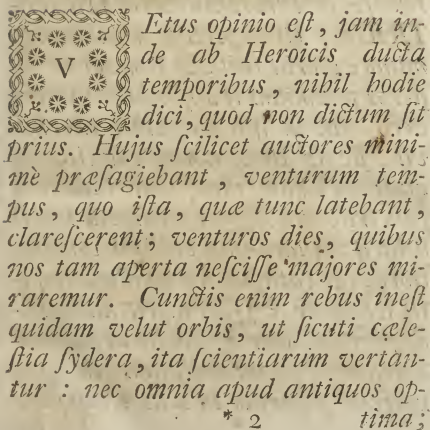 VEtus opinio eſt, jam in-
de ab Heroicis ducta
temporibus, nihil hodie
dici, quod non dictum ſit
prius. Hujus ſcilicet auctores mini-
mè præſagiebant, venturum tem-
pus, quo iſta, quæ tunc latebant,
clareſcerent; venturos dies, quibus
nos tam aperta neſciſſe majores mi-
raremur. Cunctis enim rebus ineſt
quidam velut orbis, ut ſicuti cæle-
ſtia ſydera, ita ſcientiarum vertan-
tur : nec omnia apud antiquos op-
* 2 tima;